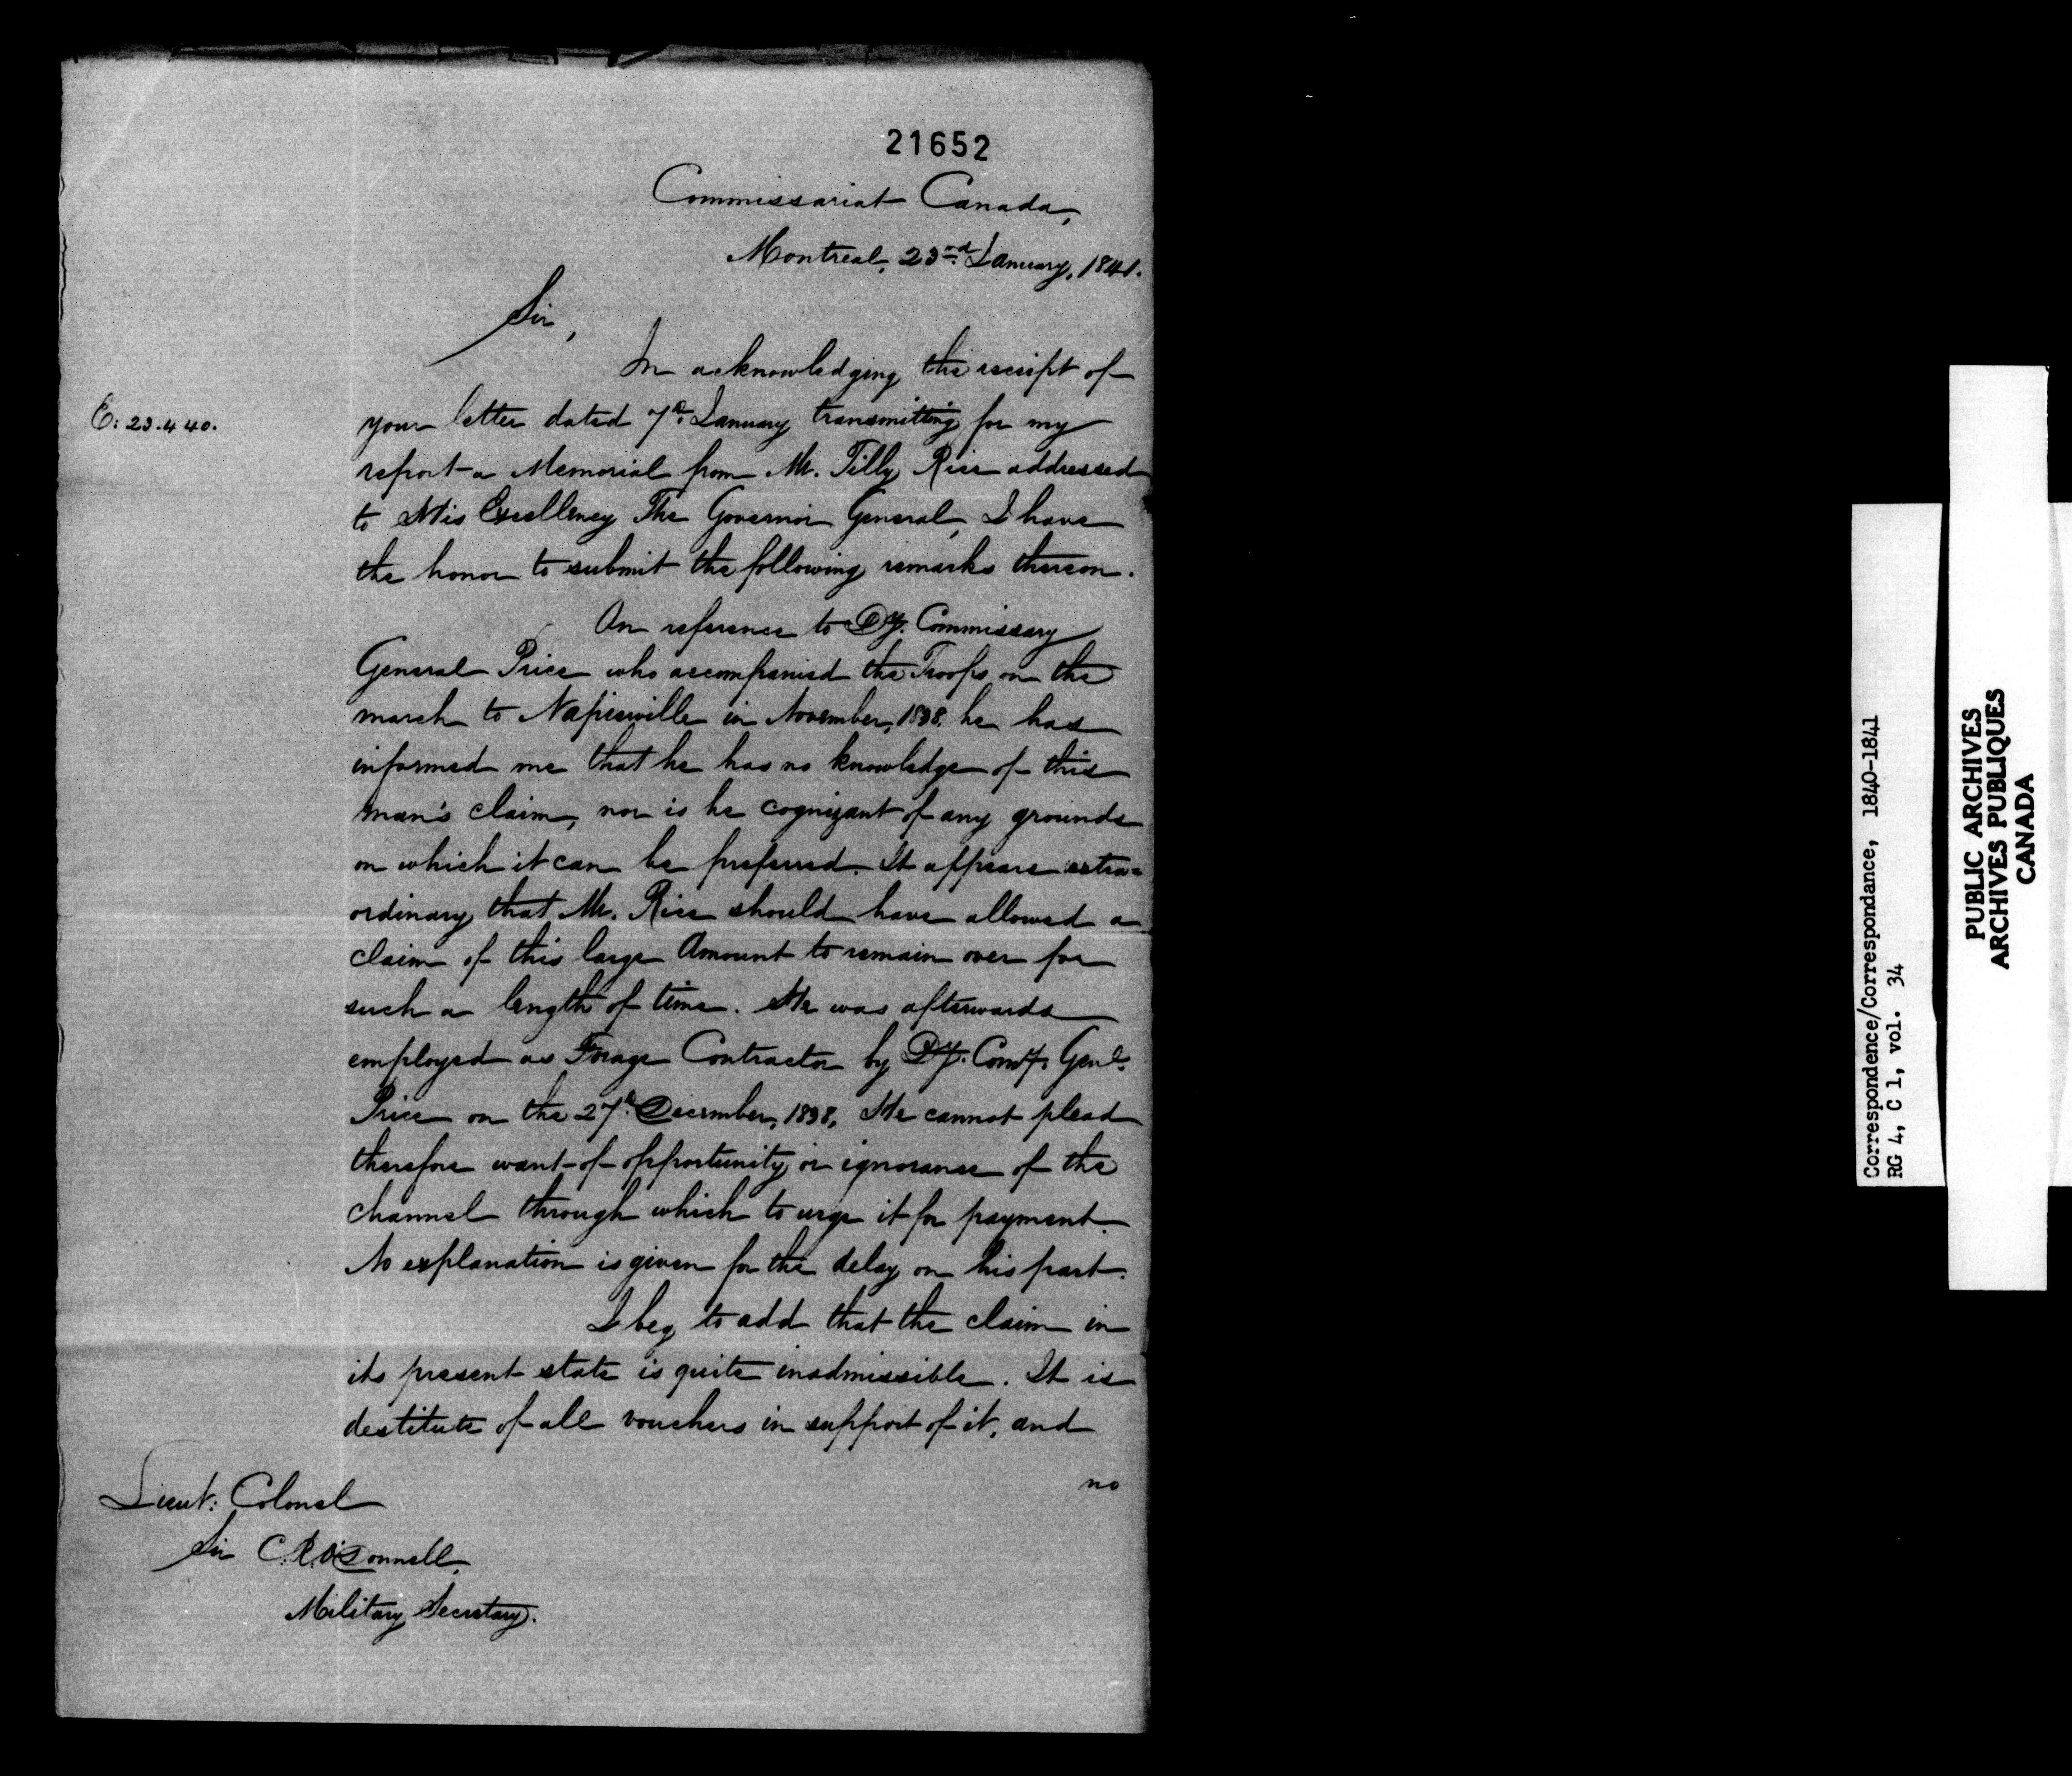 21652
Commissariat Canada,
Montreal, 23rd January, 1841.
Sir,
In acknowledging the receipt of
E: 23.4 40.
your letter dated 7th January transmitting for my
report a Memorial from Mr. Tilly Rice addressed
to His Excellency The Governor General, I have
the honor to submit the following remarks thereon.
On reference to Dy. Commissary
General Price who accompanied the Troops on the
march to Napierville in November, 1838, he has
informed me that he has no knowledge of this
man's claim, nor is he cognizant of any grounds
on which it can be preferred. It appears extra=
ordinary that Mr. Rice should have allowed a
claim of this large Amount to remain over for
such a length of time. He was afterwards
employed as Forage Contractor by Dy. Comy. Genl.
Price on the 27th December, 1838, He cannot plead
therefore want of opportunity or ignorance of the
channel through which to urge it for payment.
No explanation is given for the delay on his part.
I beg to add that the claim in
its present state is quite inadmissible. It is
destitute of all vouchers in support of it, and
no
Lieut: Colonel
Sir C.R. O'Donnell,
Military Secretary.
Correspondence/Correspondance, 1840-1841
RG 4, C 1, vol. 34
PUBLIC ARCHIVES
ARCHIVES PUBLIQUES
CANADA